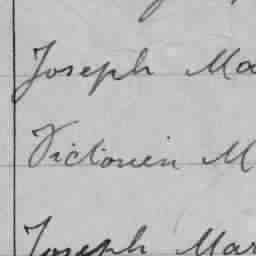 Joseph Ma
Victorien M
Joseph Mar